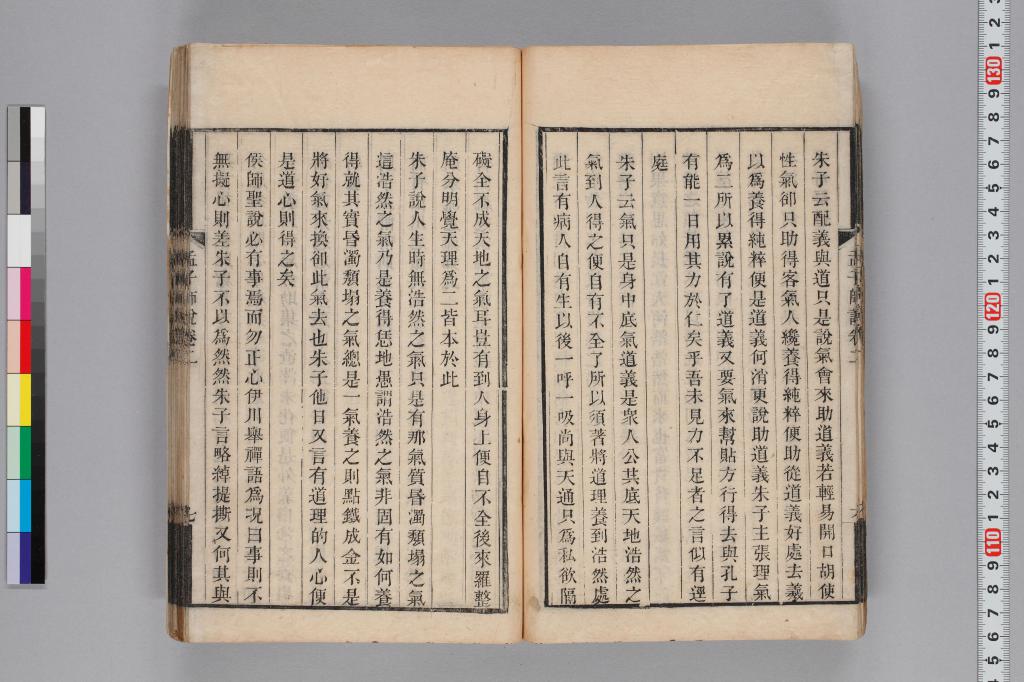 朱子云配義與道只是說氣會來助道義若輕易開口胡使
性氣卻只助得客氣人纔養得純粹便助從道義好處去義
以為養得純粹便是道義何消更說助道義朱子主張理氣
為二所以累說有了道義又要氣來幫貼方行得去與孔子
有能一日用其力於仁矣乎吾未見力不足者之言似有逕
庭
朱子云氣只是身中底氣道義是衆人公共底天地浩然之
氣到人得之便自有不全了所以須著將道理養到浩然處
此言有病人自有生以後一呼一吸尚與天通只為私欲隔
礙全不成天地之氣耳豈有到人身上便自不全後來羅整
庵分明覺天理為二皆本於此
朱子說人生時無浩然之氣只是有那氣質昏濁頹塌之氣
這浩然之氣乃是養得恁地愚謂浩然之氣非固有如何養
得就其實昏濁頹塌之氣總是一氣養之則點鐵成金不是
將好氣來換卻此氣去也朱子他日又言有道理的人心便
是道心則得之矣
侯師聖說必有事焉而勿正心伊川舉禪語為況曰事則不
無擬心則差朱子不以為然然朱子言略綽提撕又何其與
孟子師說卷二
七